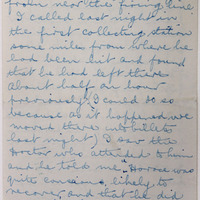 near the firing line.
I called last night in
the first collecting station
some miles from where he
had been hit and found
that he had left there
about half an hour
previously (I could do so
because as it happened we
moved there into billets
last night) I saw the
doctor who attended to him
and he told me Horace was
quite conscious, likely to
recover and that he did